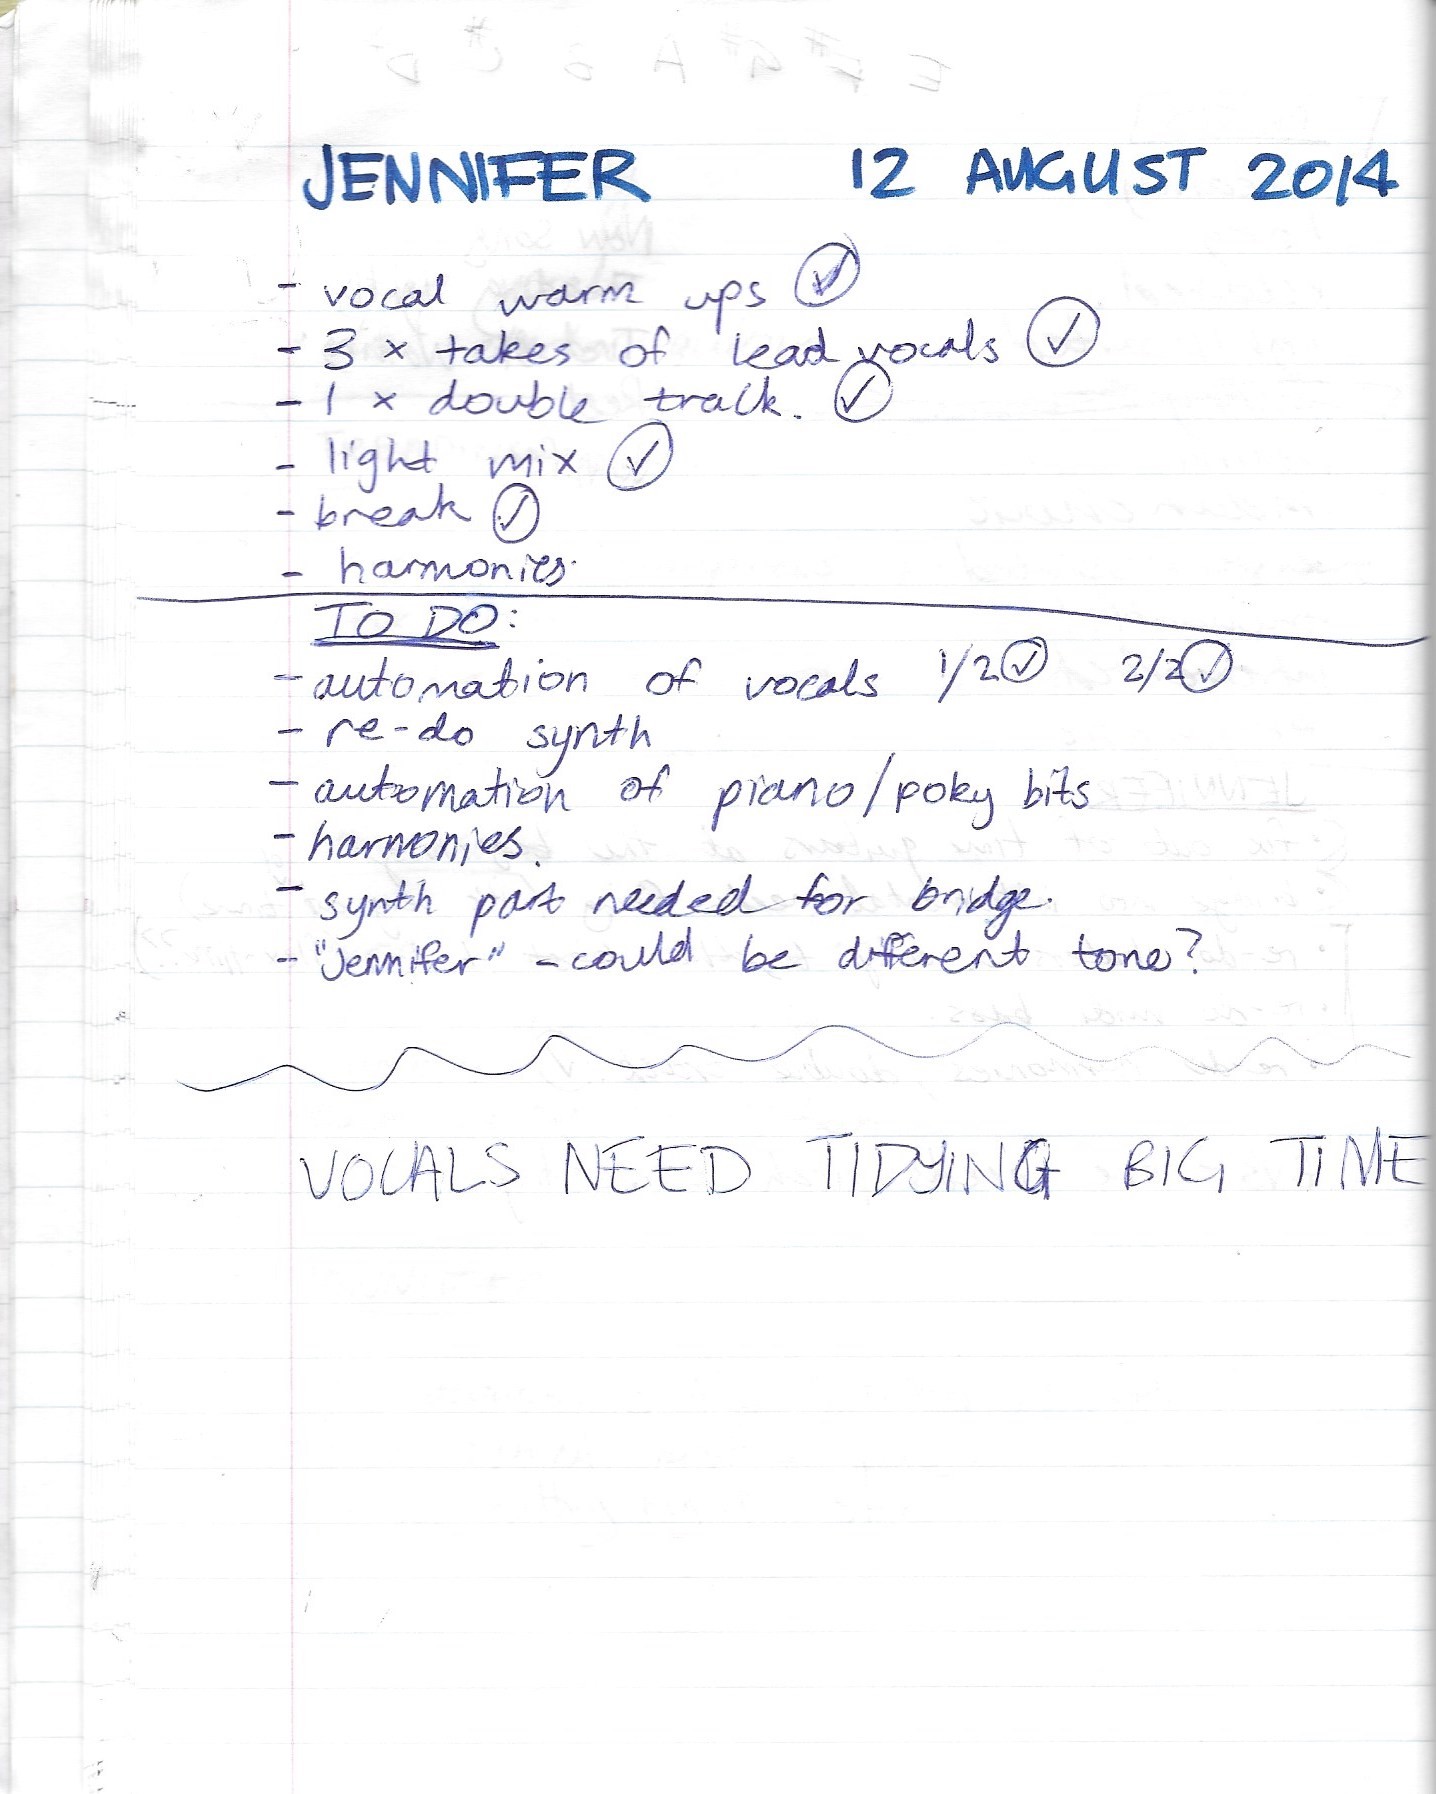 JENNIFER 12 AUGUST 2014
- vocal warm ups ✓
- 3 x takes of lead vocals ✓
- 1 x double track. ✓
- light mix ✓
- break ✓
- harmonies.
TO DO:
- automation of vocals 1/2 ✓ 2/2 ✓
- re-do synth
- automation of piano/poky bits
- harmonies.
- synth part needed for bridge.
- "Jennifer" - could be different tone?
VOCALS NEED TIDYING BIG TIME